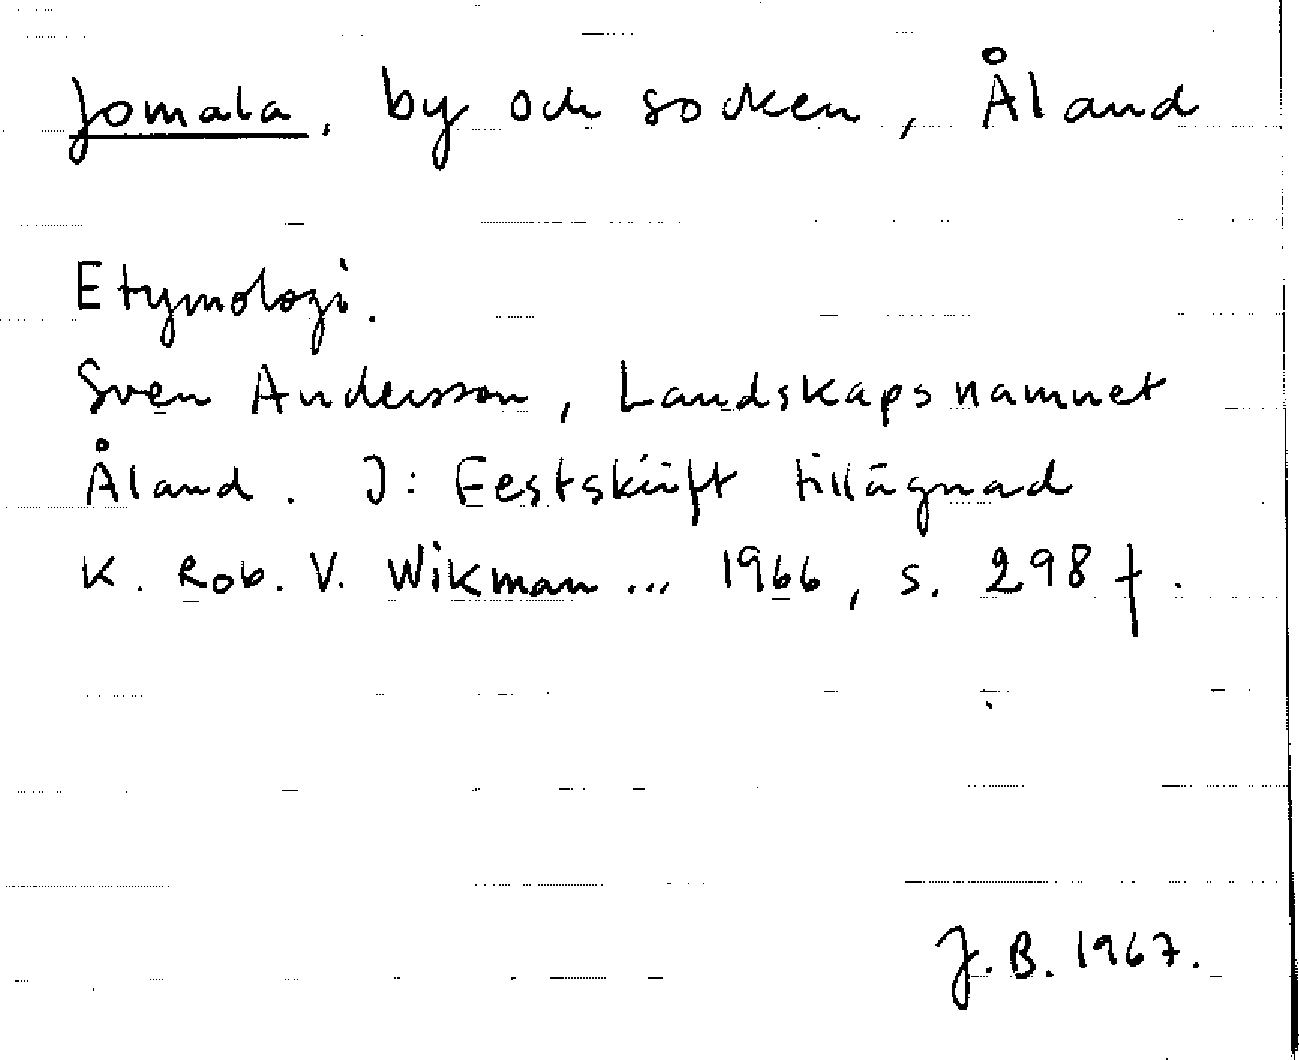 Jomala, by och socken, Åland
Etymologi.
Sven Andersson, Landskapsnamnet
Åland. I: Festskrift tillägnad
K. Rob. V. Wikman ... 1966, s. 298 f.
J. B. 1967.